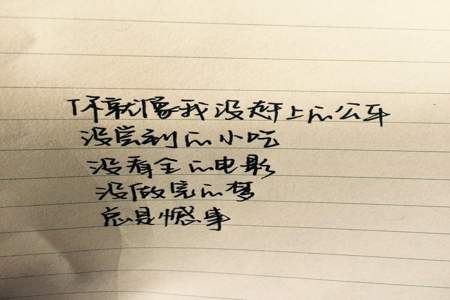 你就像我没赶上的公车
没尝到的小吃
没看全的电影
没做完的梦
总是憾事